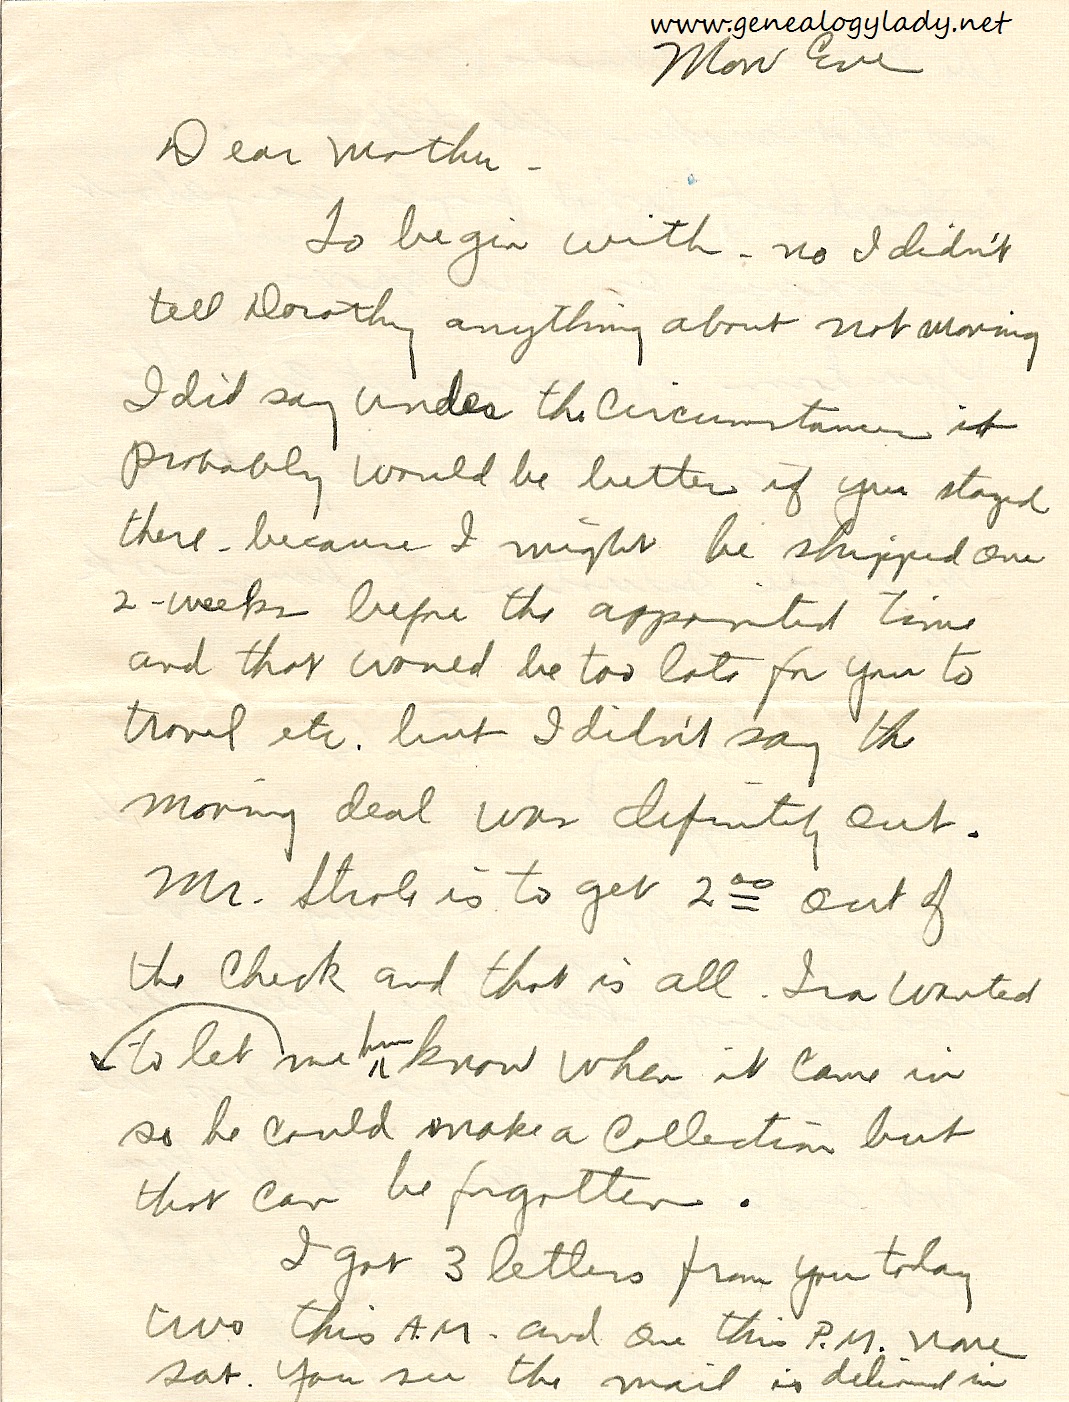 www.genealogylady.net
Mon Eve
Dear Mother -
To begin with - no I didn't
tell Dorothy anything about not moving
I did say under the circumstances it
probably would be better if you stayed
there - because I might be shipped one
2-weeks before the appointed time
and that would be too late for you to
travel etc. but I didn't say the
moving deal was definitely out.
Mr. Strole is to get 2 00 out of
the check and that is all. Ira wanted
to let me him know when it came in
so he could make a collection but
that can be forgotten.
I got 3 letters from you today
two this A.M. - and one this P.M. none
sat. You see the mail is delivered in